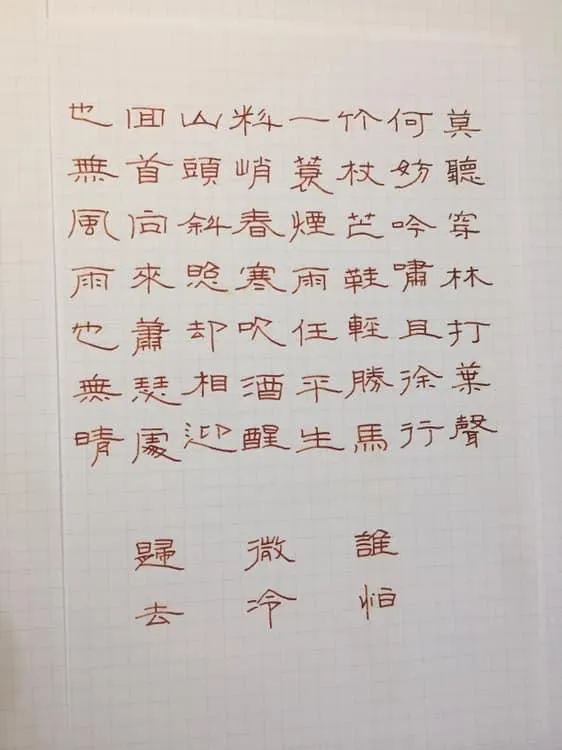 莫聽穿林打葉聲
何妨吟嘯且徐行
竹杖芒鞋輕勝馬
誰怕
一蓑煙雨任平生
料峭春寒吹酒醒
微冷
山頭斜照却相迎
回首向來蕭瑟處
歸去
也無風雨也無晴